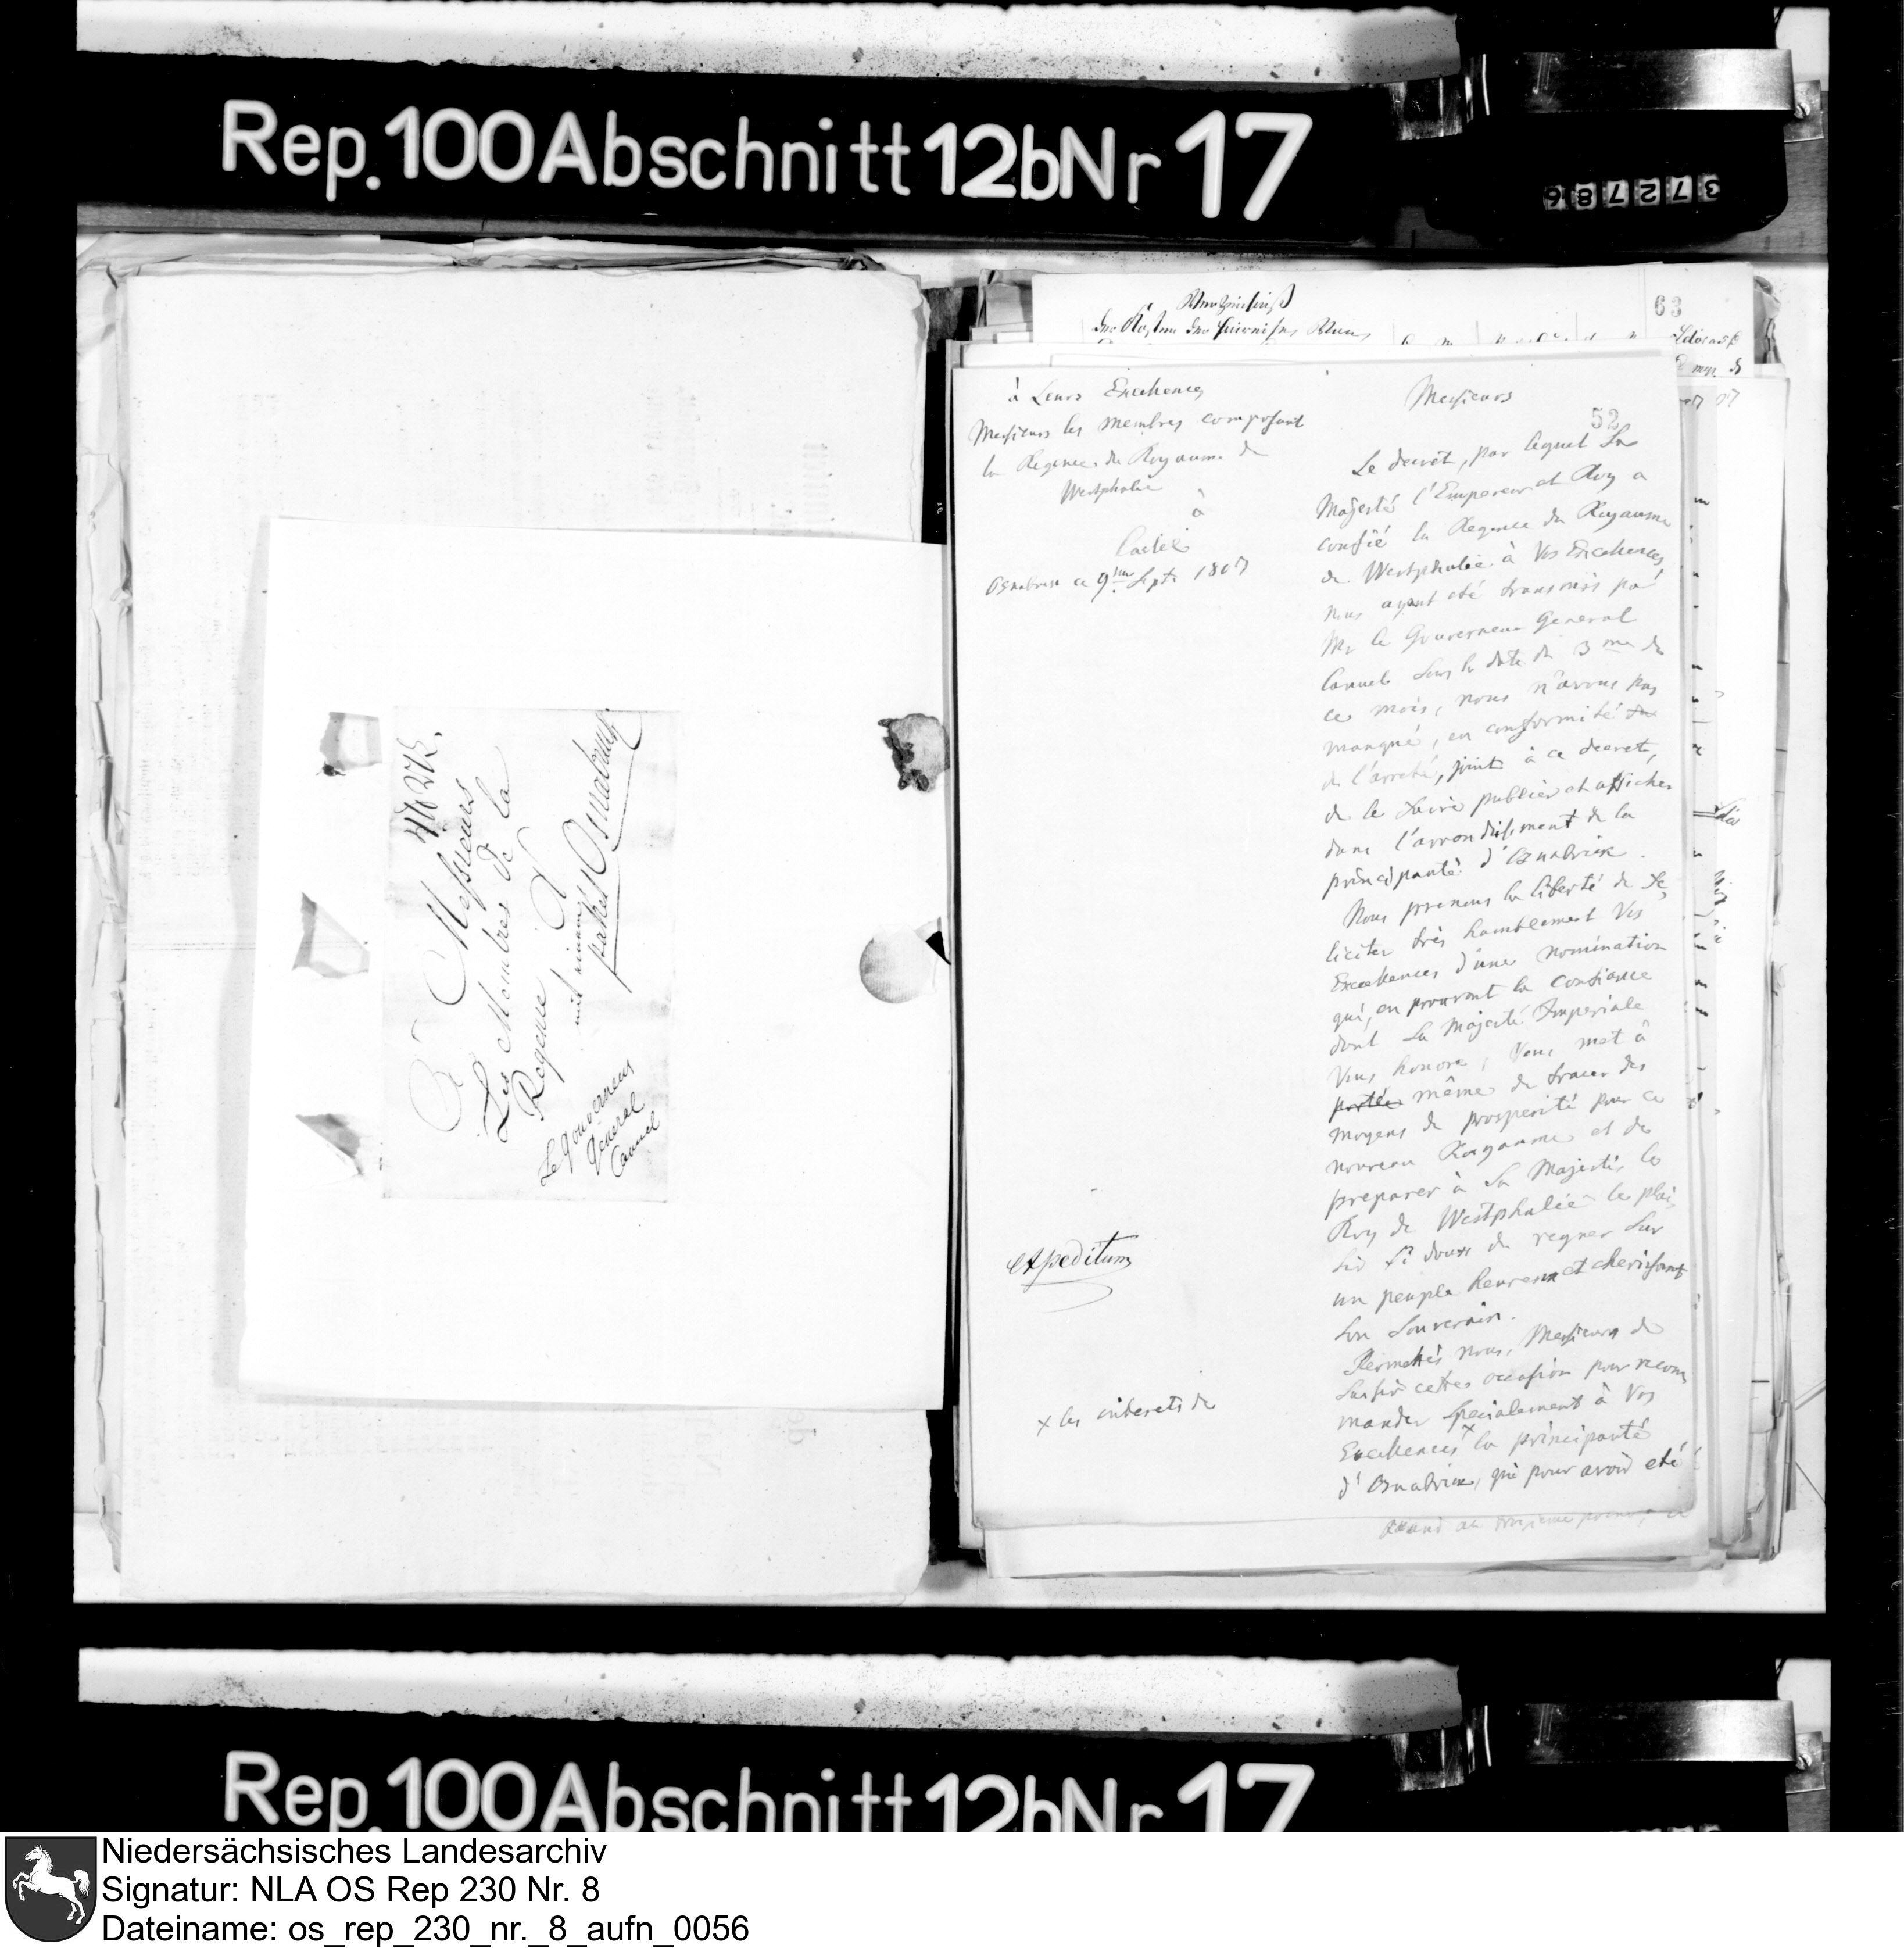 Rep. 100 Abschnitt 12b Nr 17
372786
63
No 272.
A Messieurs
Les Membres de la
Regence
A
mit einem
paket Osnabruck
Le Gouverneur
General
Canuel
à Leurs Excellences
Messieurs les membres composant
la Regence du Royaume de
Westphalie
à
Cassel
Osnabruck ce 9me Sept. 1807
expeditum
x les interets de
Messieurs
52
Le decret, par lequel Sa
Majesté l'Empereur et Roy a
confié la Regence du Royaume
de Westphalie à Vos Excellences,
nous ayant eté transmis par
Mr le Gouverneur General
Canuel sous la date du 3me de
ce mois, nous n'avons pas
manqué, en conformité
de l'arreté, joint à ce decret,
de le faire publier et afficher
dans l'arrondissement de la
principauté d'Osnabrück.
Nous prenons la liberté de fe,
liciter très humblement Vos
Excellences d'une nomination
qui, en prouvant la confiance
dont Sa Majesté Imperiale
Vous honore, Vous met à
portée même de tracer des
moyens de prosperité pour ce
nouveau Royaume et de
preparer à Sa Majesté le
Roy de Westphalie le plai,
sir si doux de regner sur
un peuple heureux et cherissant
son Souverain.
Permettés nous, Messieurs de
saisir cette occasion pour recom
mander specialement à Vos
Excellences x la principauté
d'Osnabrück, qui pour avoir eté
Rep. 100 Abschnitt 12b Nr 17
Niedersächsisches Landesarchiv
Signatur: NLA OS Rep 230 Nr. 8
Dateiname: os_rep_230_nr._8_aufn_0056